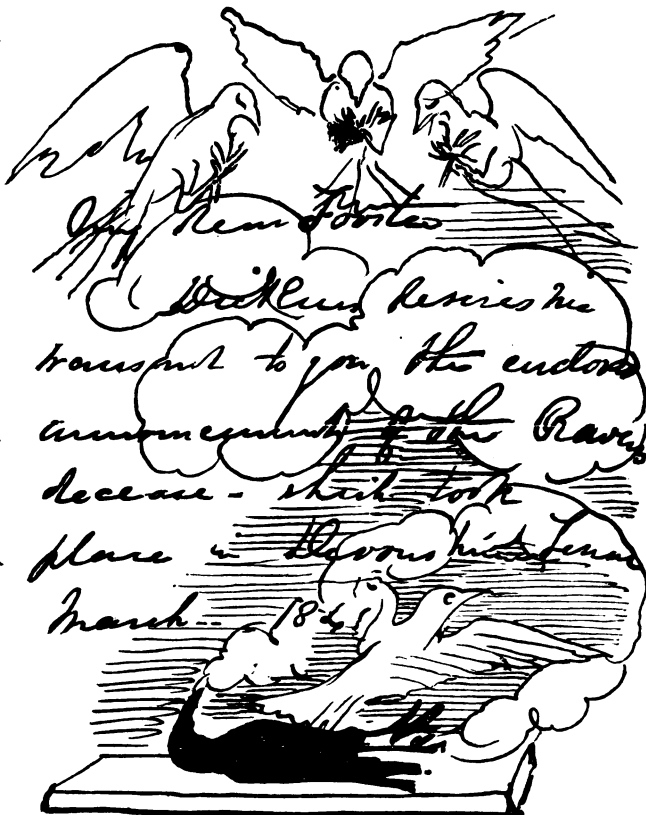 My dear Forster
Dickens desires me
transmit to you the enclosed
announcement of the Raven's
decease - which took
place in Devonshire Terrace
March .. 184